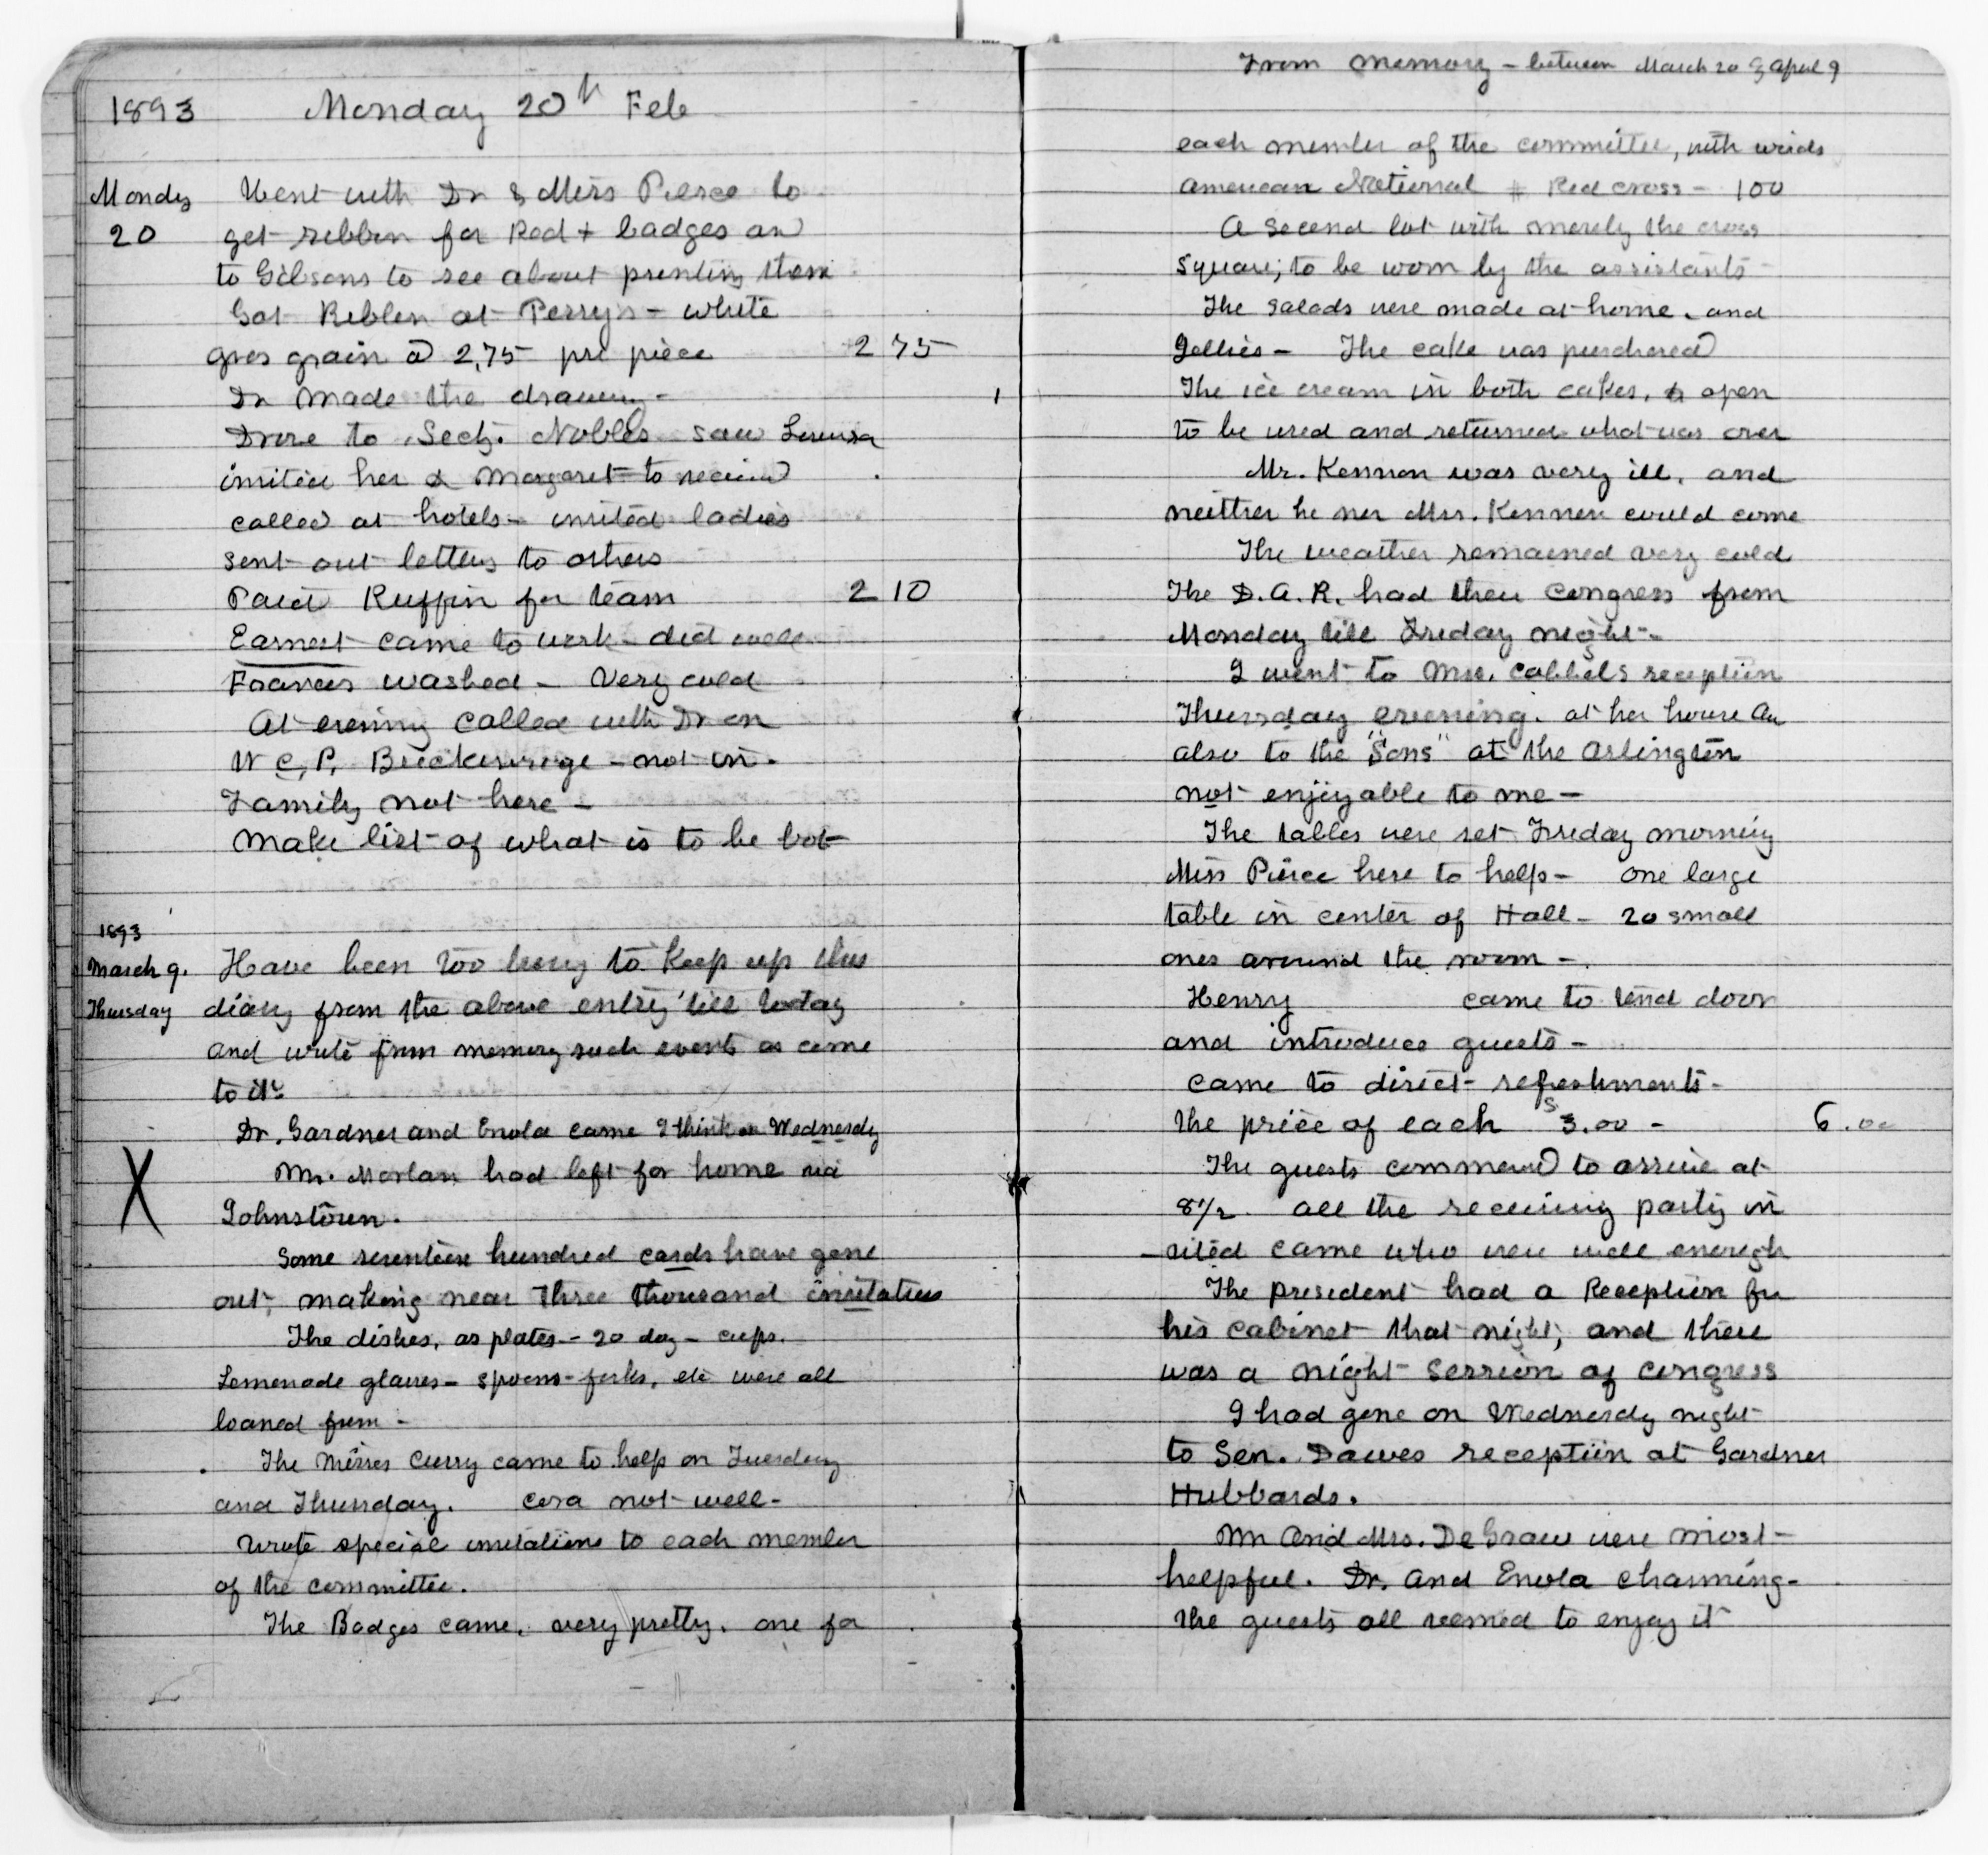 1893 Monday 20th Feb
Monday Went with Dr & Miss Pierce to
20 get ribbon for Red + badges and
to Gibsons to see about printing them
Got Ribbon at Perry's - white
gros grain @ 2,75 pr piece 2 75
Dr made the drawing -
Drove to Secty. Nobles saw
invited her & Margaret to receive
called at hotels - invited ladies
sent out letters to others
Paid Ruffin for team 2 10
Earnest came to work - did well
Frances washed - Very cold
At evening called with Dr on
W C, P, Breckenrige - not in.
Family not here -
Make list of what is to be bot
1893
March 9. Have been too busy to keep up this
Thursday diary from the above entry 'till today
and write from memory such events as come
to it
Dr. Gardner and Enola came I think on Wednesdy
X Mr. Morlan had left for home via
Johnstown.
Some seventeen hundred cards have gone
out, making near three thousand invitations
The dishes, as plates - 20 doz - cups.
Lemonade glasses - spoons - forks, etc were all
loaned from -
The Misses Curry came to help on Tuesday
and Thursday. Cora not well -
Wrote special invitations to each member
of the committee.
The Badges came, very pretty. one for
From memory - between March 20 & April 9
each member of the committee, with words
American National # Red cross - 100
A second lot with merely the cross
square; to be worn by the assistants -
The salads were made at home, and
Jellies - The cake was purchased
The ice cream in both cakes, & open
to be used and returned what was over
Mr. Kennon was very ill, and
neither he nor Mrs. Kennon could come
The weather remained very cold
The D.A.R. had their Congress from
Monday till Friday night -
I went to Mrs. Cabbels reception
Thursday evening. at her house An
also to the "Sons" at the Arlington
not enjoyable to me -
The tables were set Friday morning
Miss Pierce here to help - one large
table in center of Hall - 20 small
ones around the room -
Henry came to tend door
and introduce guests -
came to direct refreshments -
the price of each $3.00 - 6.00
The guests commenced to arrive at
8 1/2. all the receiving party in
-vited came who were well enough
The President had a Reception for
his cabinet that night, and there
was a night session of congress
I had gone on Wednesdy night
to Sen. Dawes reception at Gardner
Hubbards.
Mr and Mrs. De Graw were most
helpful. Dr. and Enola charming -
the guests all seemed to enjoy it